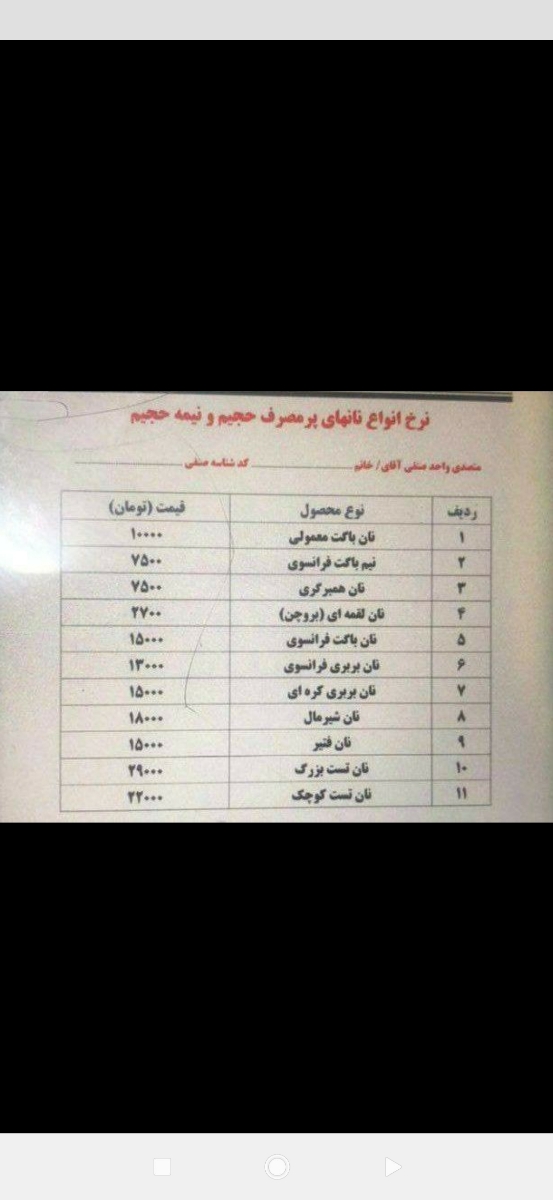 نرخ انواع نانهای پر مصرف حجیم و نیمه حجیم
متصدی واحد صنفی آقای/ خانم ........................ کد شناسه صنفی ........................
ردیف نوع محصول قیمت (تومان)
۱ نان باگت معمولی ۱۰۰۰۰
۲ نیم باگت فرانسوی ۷۵۰۰
۳ نان همبرگری ۷۵۰۰
۴ نان لقمه ای (بروچن) ۲۷۰۰
۵ نان باگت فرانسوی ۱۵۰۰۰
۶ نان بربری فرانسوی ۱۳۰۰۰
۷ نان بربری کره ای ۱۵۰۰۰
۸ نان شیرمال ۱۸۰۰۰
۹ نان فتیر ۱۵۰۰۰
۱۰ نان تست بزرگ ۲۹۰۰۰
۱۱ نان تست کوچک ۲۲۰۰۰